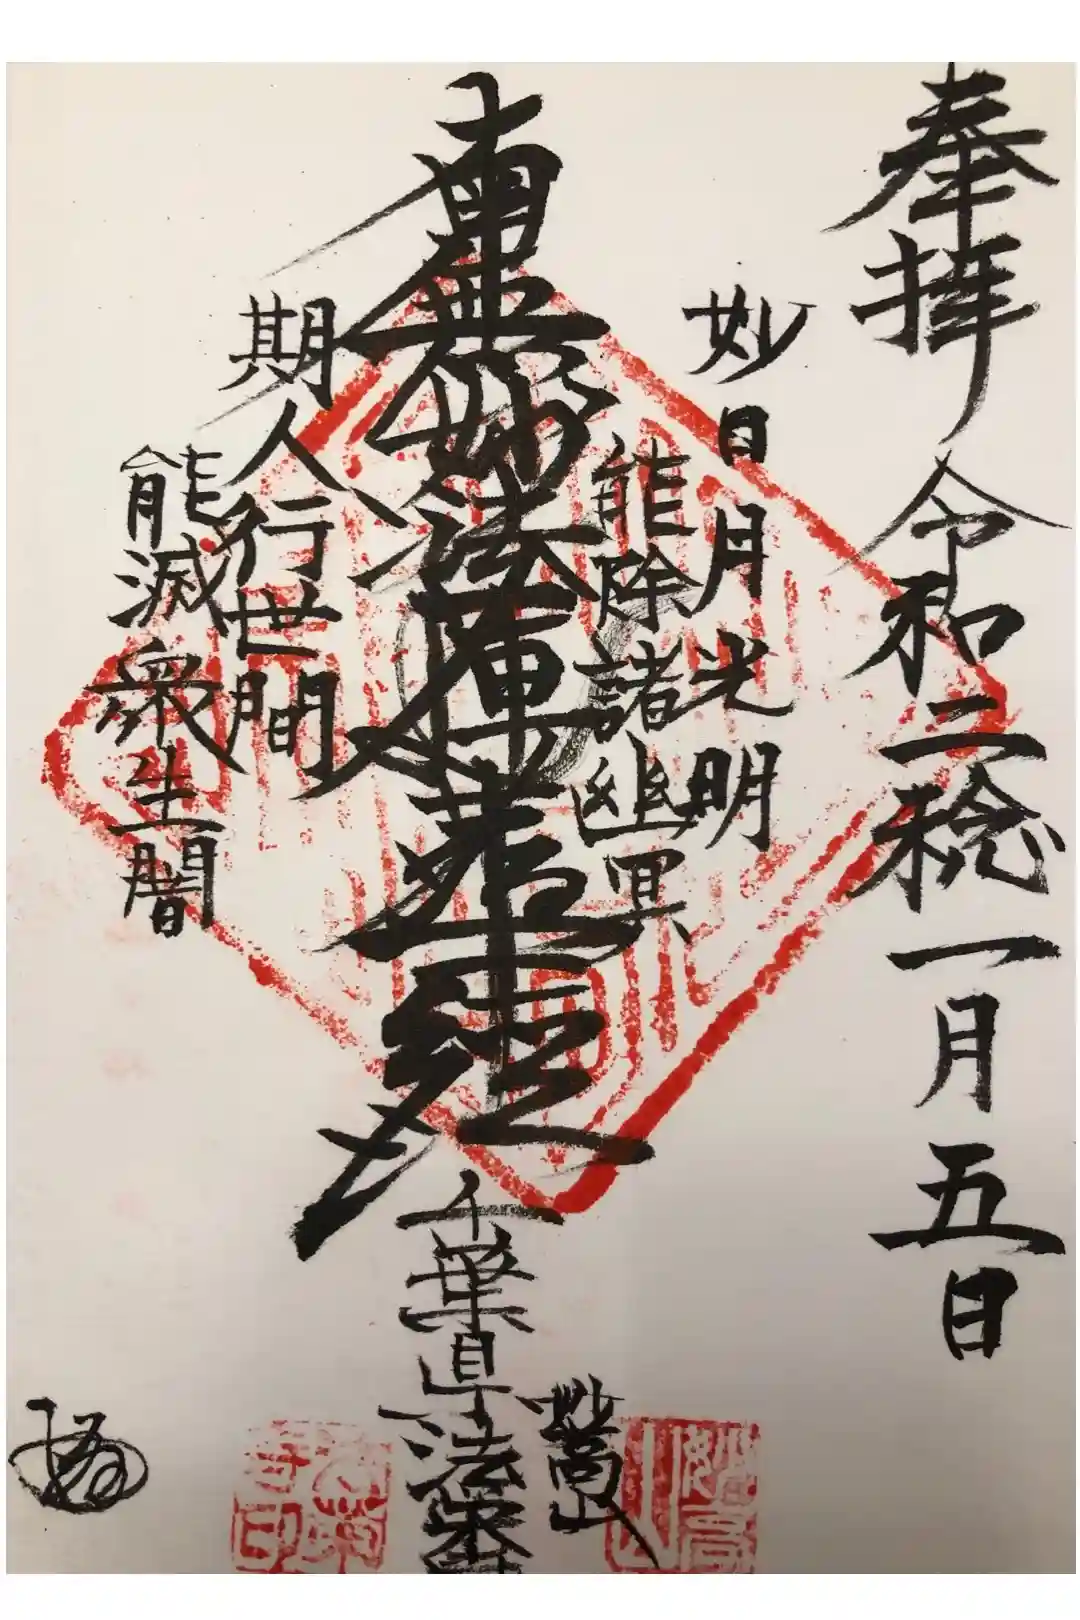 奉拝 令和二稔一月五日
妙日月光明
能除諸幽冥
南無妙法蓮華経
期人行世間
能滅衆生闇
千葉県法華
妙高山